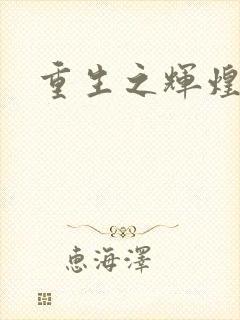 重生之輝煌
恵海澤